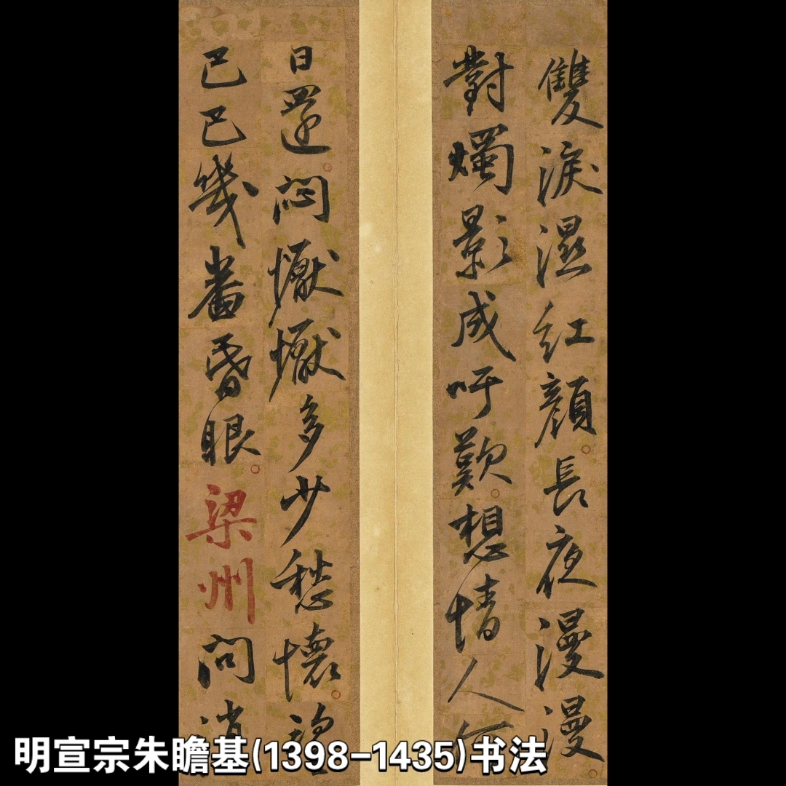 雙淚濕紅顏長夜漫漫
對燭影成吁歎想情人
日還悶懨懨多少愁懷
巴巴幾番昏眼梁州問
明宣宗朱瞻基(1398-1435)书法